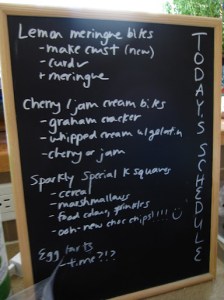 Lemon meringue bites
- make crust (new)
- curd ✓
+ meringue
Cherry/jam cream bites
- graham cracker
- whipped cream w/gelatin
- cherry or jam
Sparkly Special K squares
- cereal
- marshmallows
- food colour, sprinkles
- ooh - new choc chips!!!!
Egg tarts
- time?!?
TODAY'S SCHEDULE